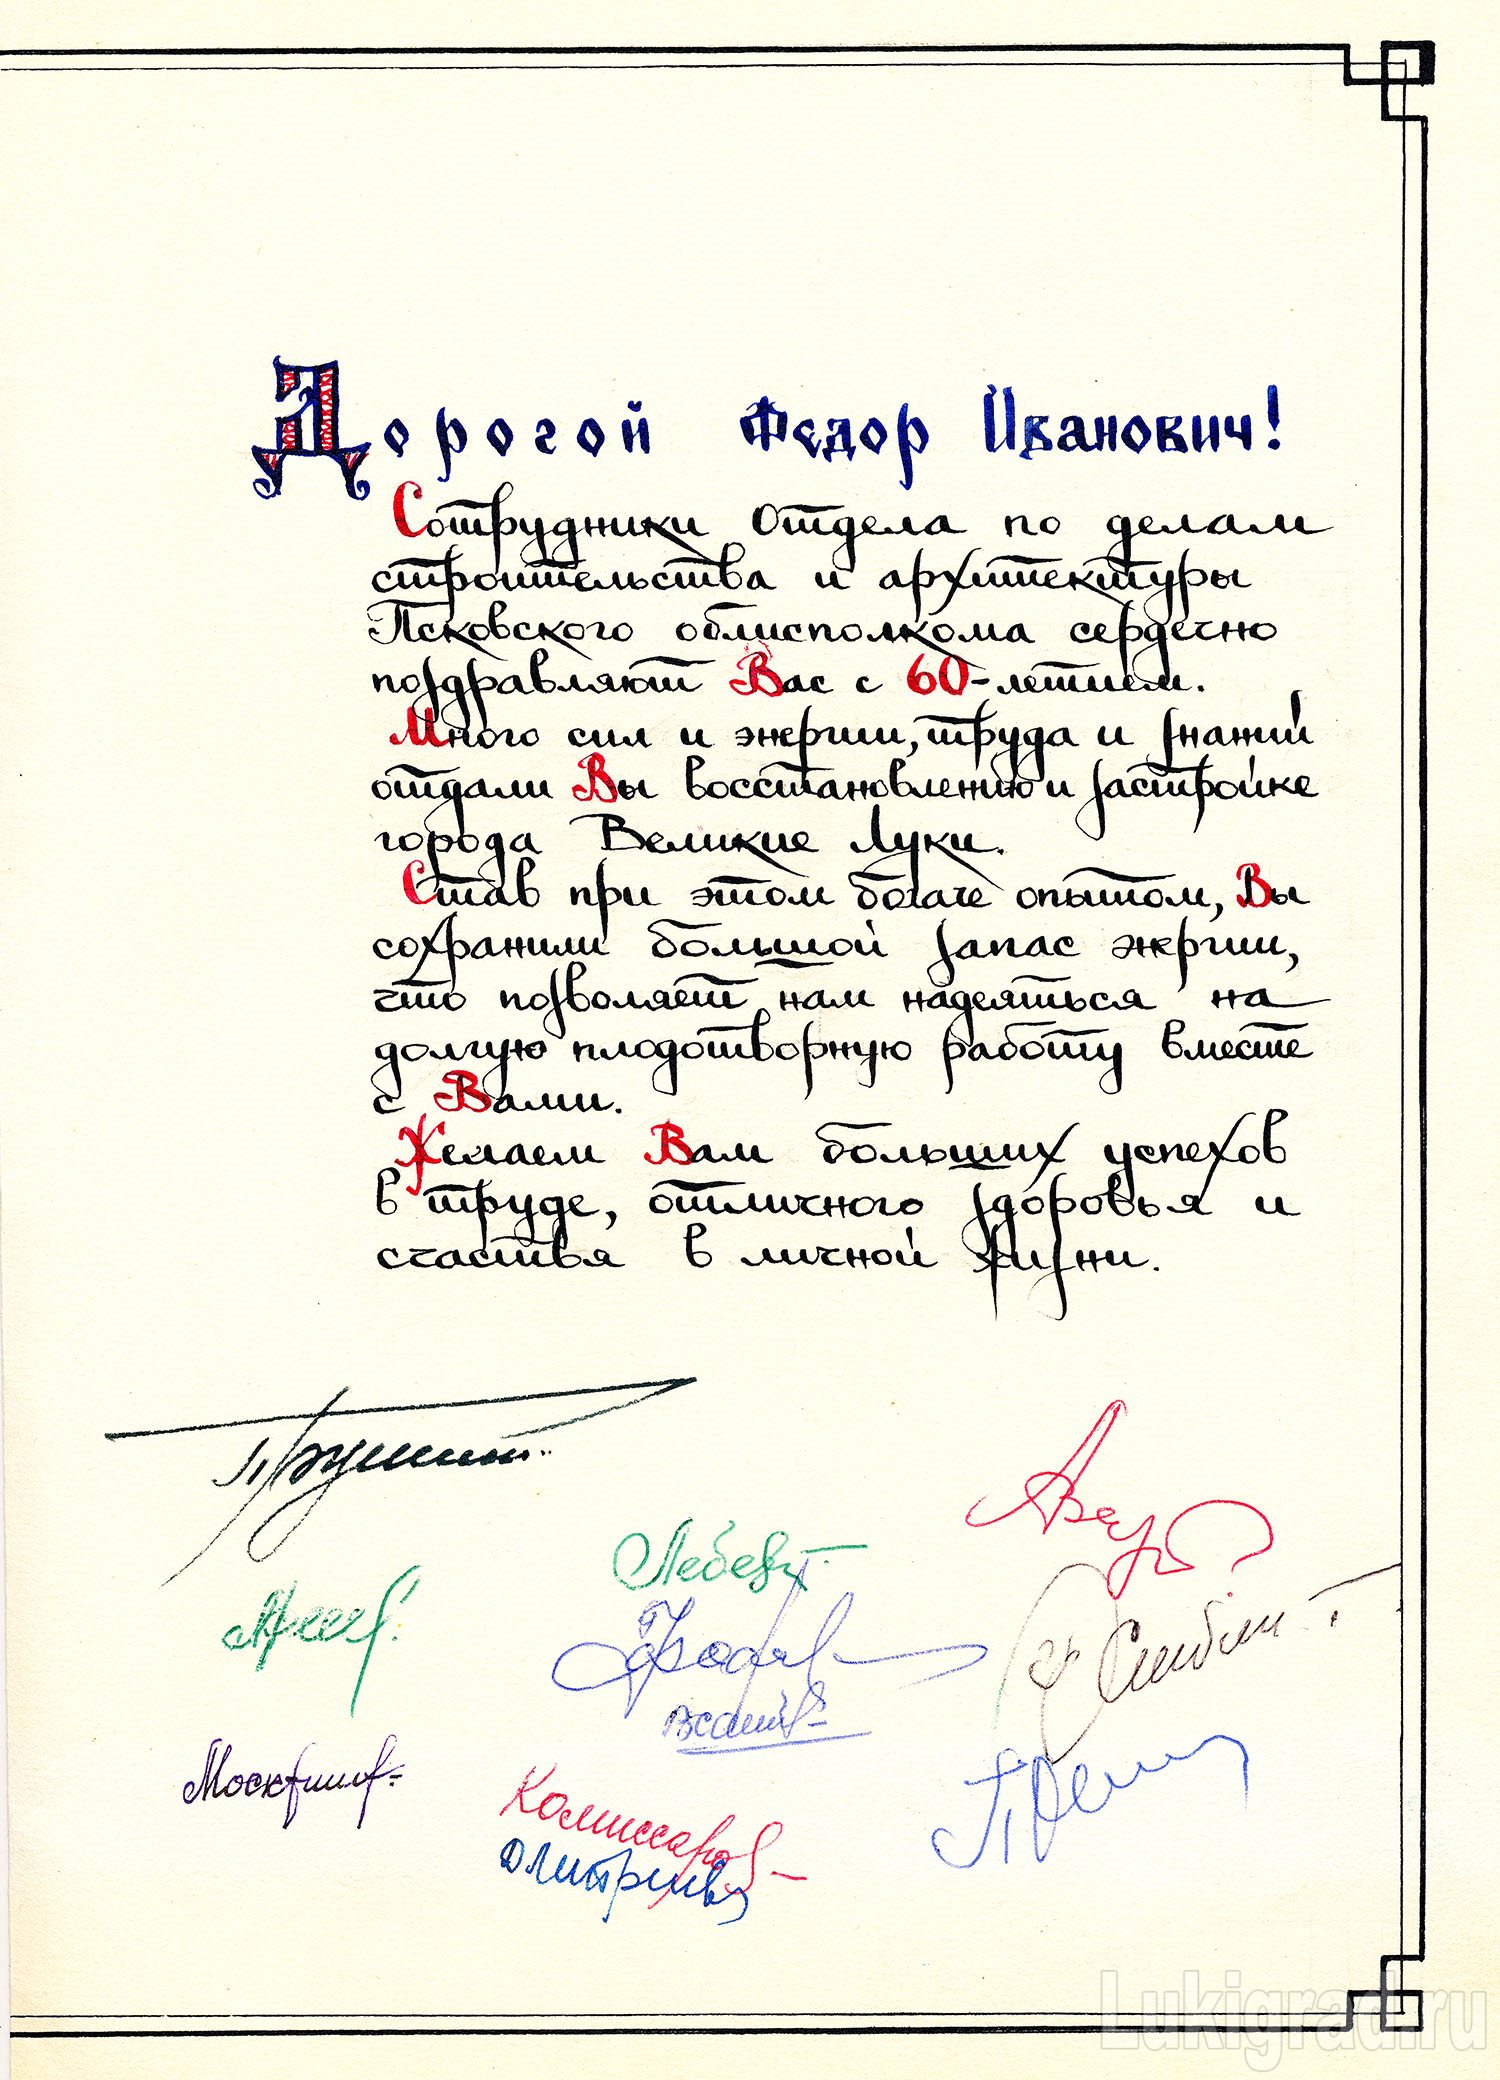 Дорогой Федор Иванович!
Сотрудники отдела по делам
строительства и архитектуры
Псковского облисполкома сердечно
поздравляют Вас с 60-летием.
Много сил и энергии, труда и знаний
отдали Вы восстановлению и застройке
города Великие Луки.
Став при этом богаче опытом, Вы
сохранили большой запас энергии,
что позволяет нам надеяться на
долгую плодотворную работу вместе
с Вами.
Желаем Вам больших успехов
в труде, отличного здоровья и
счастья в личной жизни.
Комиссаров
Lukigrad.ru